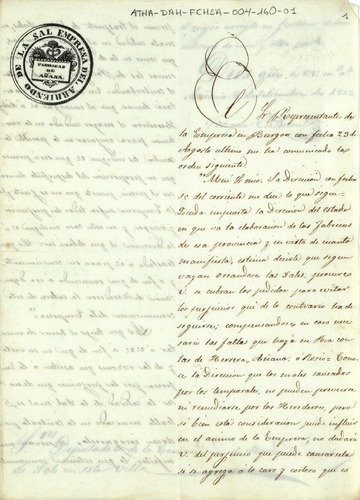 ATHA-DAH-FCHSA-004-160-01
1
EMPRESA DEL ARRIENDO DE LA SAL
FABRICAS DE AÑANA
El Representante de
la Empresa en Burgos con fecha 23 de
Agosto ultimo me ha comunicado la
orden siguiente
"Muy Sr mio. La Direccion con fecha
15 del corriente me dice lo que sigue
Queda impuesta la Direccion del estado
en que va la elaboracion de las Fabricas
de esa provincia y en vista de cuanto
manifiesta, estima decirle que segun
vayan escaseando las Sales, procure
V. se cubran los pedidos para evitar
los perjuicios que de lo contrario ha de
seguirse; compensandose en caso nece-
sario las faltas que haya en Poza con
las de Herrera, Añana, ó Rosio: Cono-
ce la direccion que los males causados
por los temporales, no pueden preverse
ni remediarse por los Herederos, pero
si bien esta consideracion puede influir
en el animo de la Empresa, no dudará
V. del perjuicio que puede causarsele
si se agrega a lo caro y costoso que es